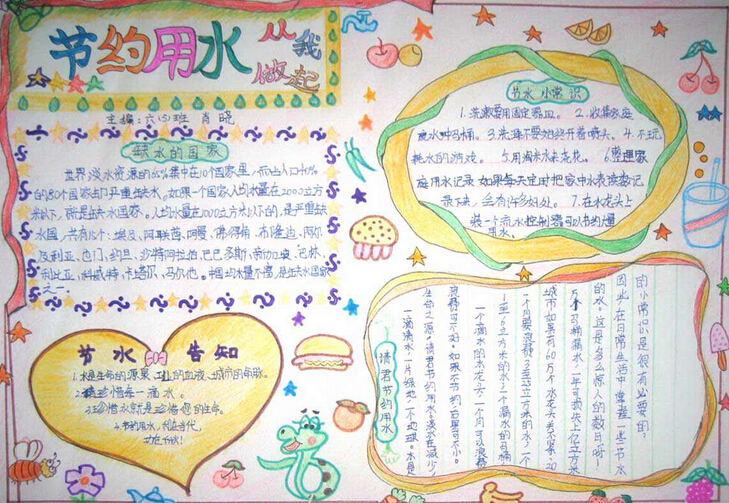 节约用水 从我做起
主编：六(3)班 肖晓
缺水的国家
世界淡水资源的65%集中在10个国家里，而占人口40%
的80个国家出门严重缺水。如果一个国家人均水量在2000立方
米以下，就是缺水国家。人均水量在1000立方米以下的，是严重缺
水国，共有15个：埃及、阿联酋、阿曼、佛得角、布隆迪、阿尔
及利亚、也门、约旦、沙特阿拉伯、巴巴多斯、新加坡、巴林、
利比亚、科威特、卡塔尔、马尔他。中国均水量不富，是缺水国家
之一。
节水小常识
1.洗漱要用固定器皿。 2.收集家庭
废水冲马桶。3.洗澡不要始终开着喷头。4.不玩
耗水的游戏。 5.用淘米水来浇花。 6.管理家
庭用水记录如果每天定时把家中水表读数记
录下来，会有许多好处。 7.在水龙头上
装一个流水控制器可以节约大量
用水。
节水告知
1.水是生命的源泉、工业的血液、城市的命脉。
2.珍惜每一滴水。
3.珍惜水就是珍惜您的生命。
4.节约用水，利在当代，
功在千秋！
请君节约用水
一滴滴水，一片绿地，一个地球。水是
生命之源。请君节约用水。淡水在减少，
浪费可不好。如果不节约后果可不小。
一个滴水的水龙头一个月可以浪费
1至6立方米的水；一个漏水的马桶
一个月要浪费3至25立方米的水；一个
城市如果有60万个水龙头关不紧、20
万个马桶漏水，一年可损失上亿立方米
的水。这是多么惊人的数目呀！
因此，在日常生活中掌握一些节水
的小常识是很有必要的。